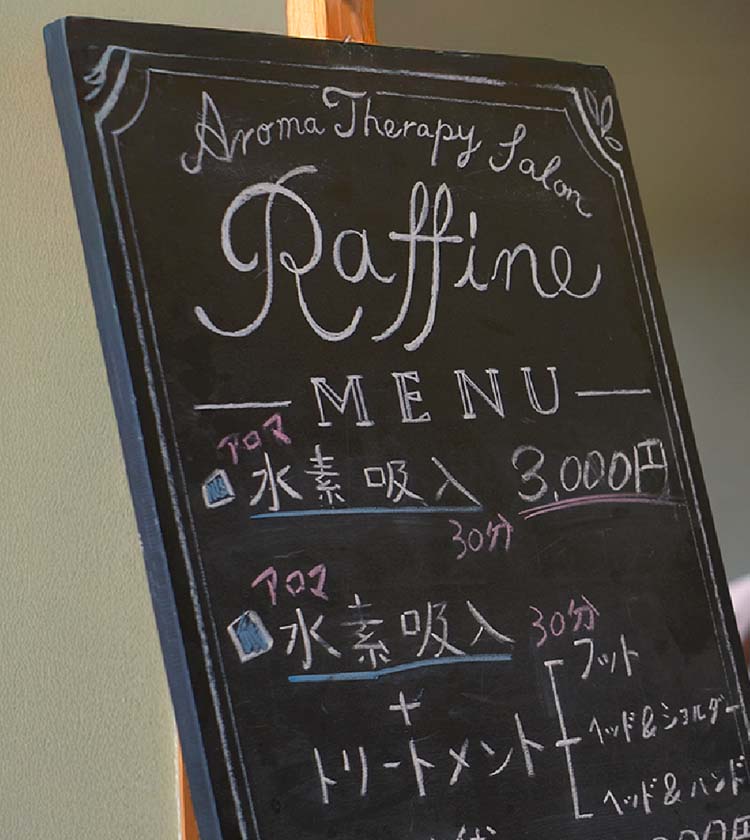 Aroma Therapy Salon
Raffine
MENU
アロマ
水素吸入 3,000円
30分
アロマ
水素吸入 30分
+
フット
トリートメント ヘッド&ショルダー
ヘッド&ハンド